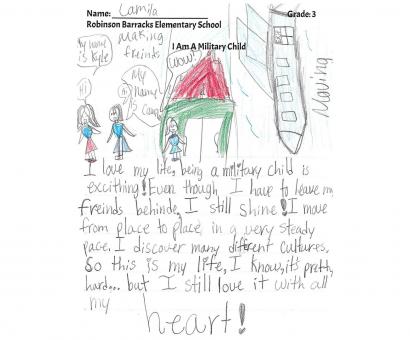 Name: Camila
Grade: 3
Robinson Barracks Elementary School
I Am A Military Child
Making
freinks
My name
is Kyle
Hi
Hi
My
Name
is Cami
Wow!
Moving
I love my life, being a military child is
excithing! Even though I have to leave my
freinds behinde, I still shine! I move
from place to place in a very steady
pace. I discover many different cultures.
So this is my life, I know, it's pretty
hard... but I still love it with all
my
heart!